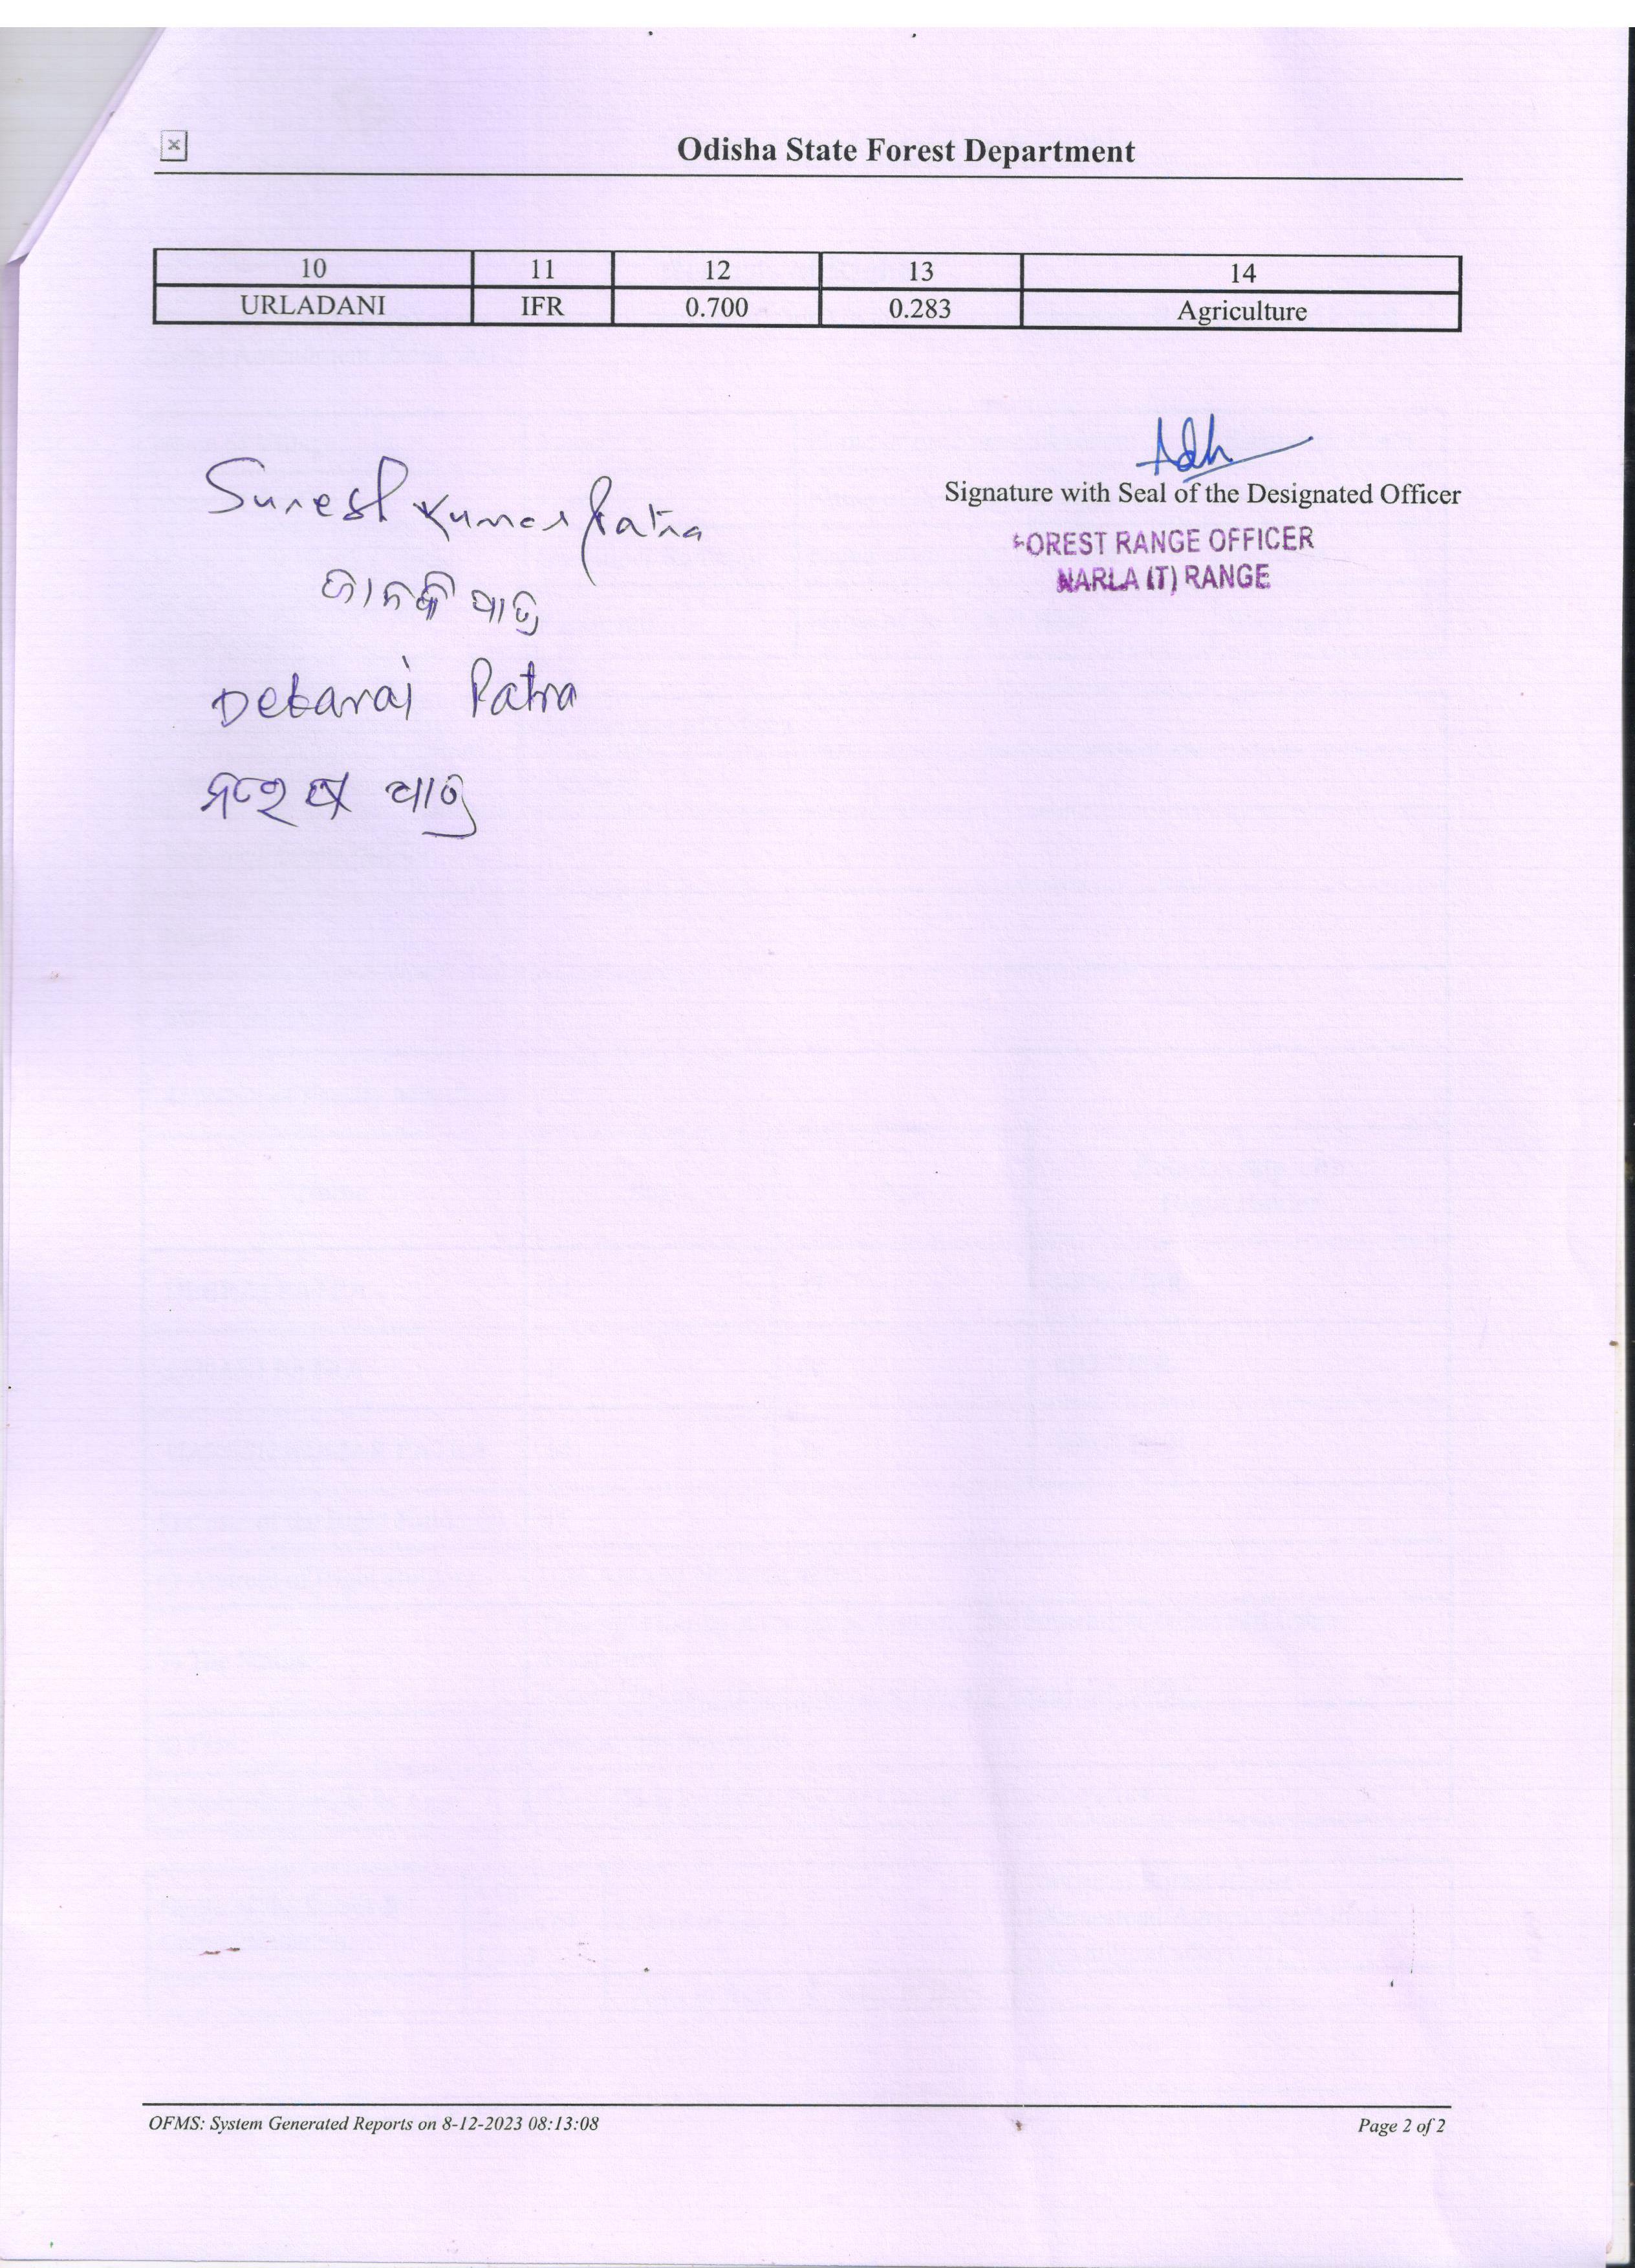 Odisha State Forest Department
10 11 12 13 14
URLADANI IFR 0.700 0.283 Agriculture
Signature with Seal of the Designated Officer
FOREST RANGE OFFICER
NARLA (T) RANGE
Suresh Kumar Patra
ଜାନକି ପାତ୍ର
Debaraj Patra
ମହେଶ ପାତ୍ର
OFMS: System Generated Reports on 8-12-2023 08:13:08
Page 2 of 2